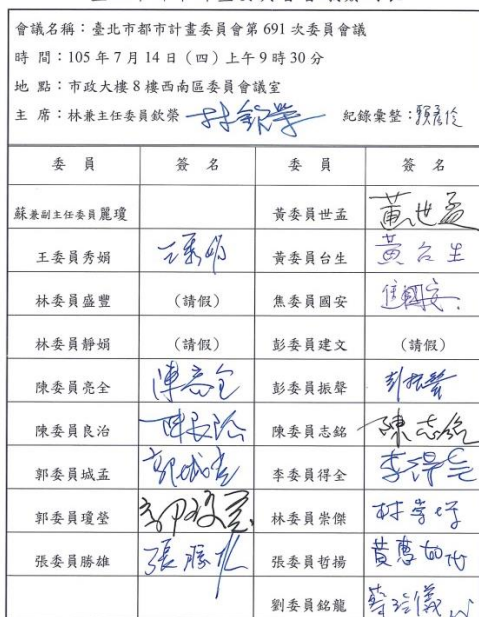 會議名稱：臺北市都市計畫委員會第 691 次委員會議
時 間：105 年 7 月 14 日（四）上午 9 時 30 分
地 點：市政大樓 8 樓西南區委員會議室
主 席：林兼主任委員欽榮 林欽榮 紀錄彙整：賴彥伶
委 員 簽 名 委 員 簽 名
蘇兼副主任委員麗瓊 黃委員世孟 黃世孟
王委員秀娟 王秀娟 黃委員台生 黃台生
林委員盛豐 (請假) 焦委員國安 焦國安
林委員靜娟 (請假) 彭委員建文 (請假)
陳委員亮全 陳亮全 彭委員振聲 彭振聲
陳委員良治 陳良治 陳委員志銘 陳志銘
郭委員城孟 郭城孟 李委員得全 李得全
郭委員瓊瑩 郭瓊瑩 林委員崇傑 林崇傑
張委員勝雄 張勝雄 張委員哲揚 黃惠如代
劉委員銘龍